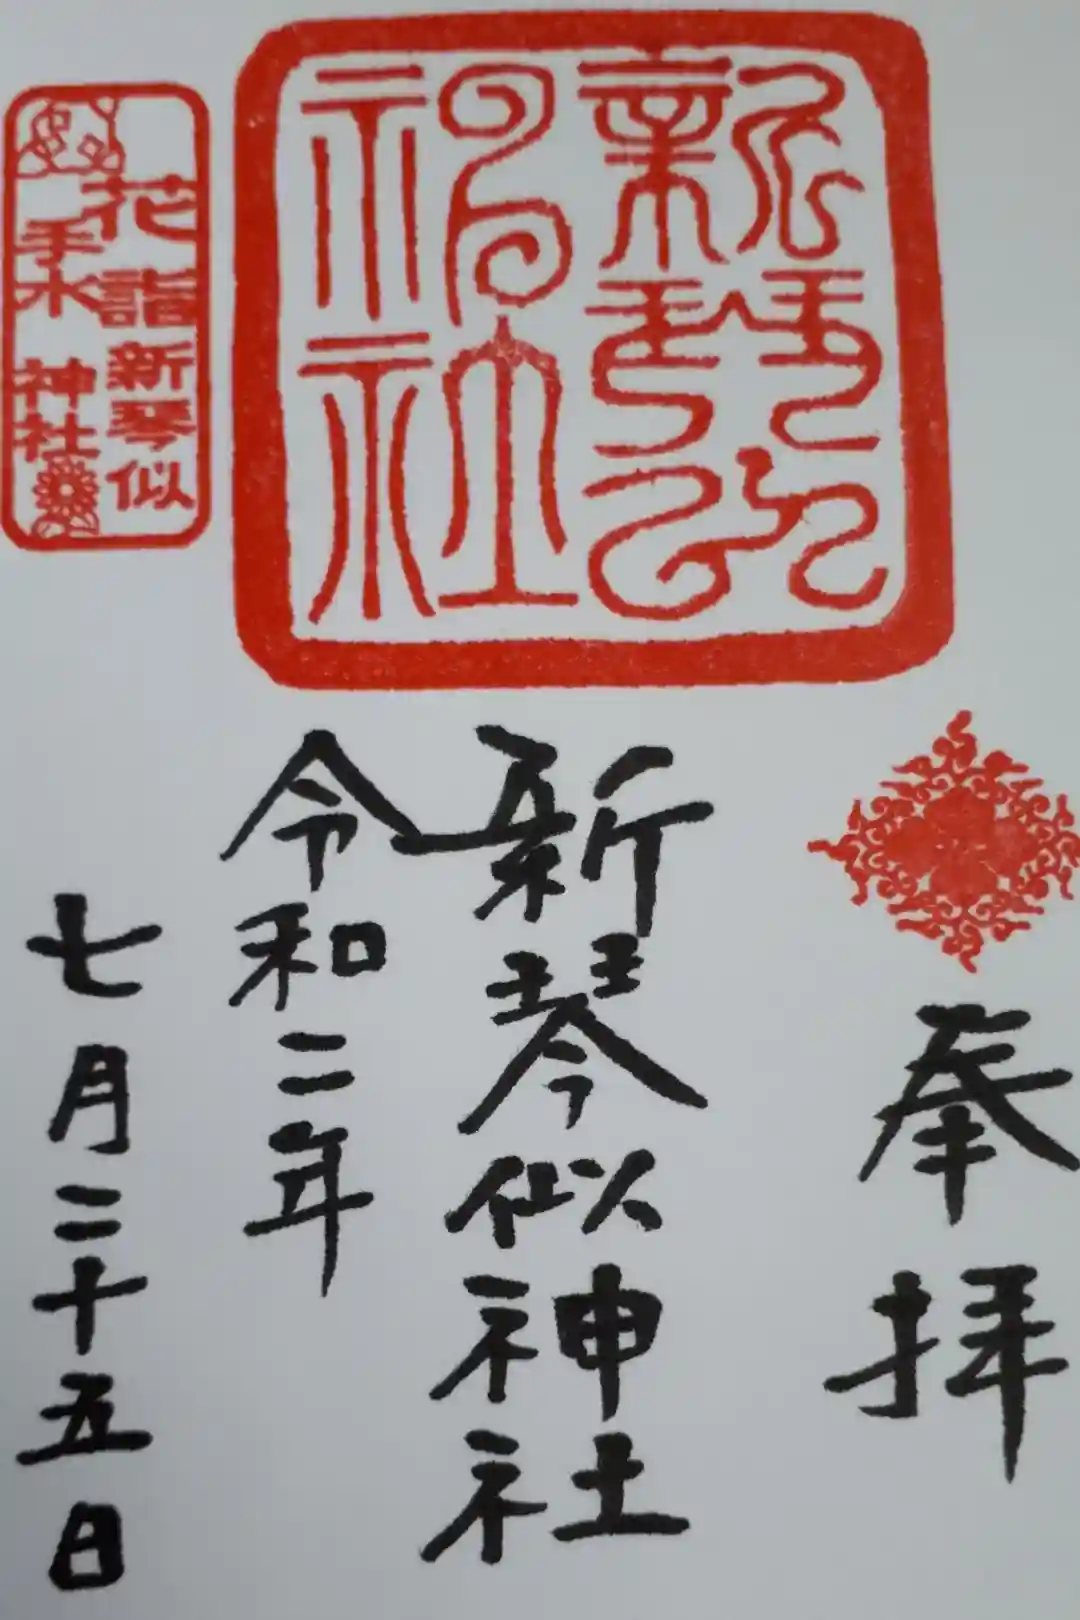 新琴似
神社
花詣
新琴似
手水
神社
奉拝
新琴似神社
令和二年
七月二十五日